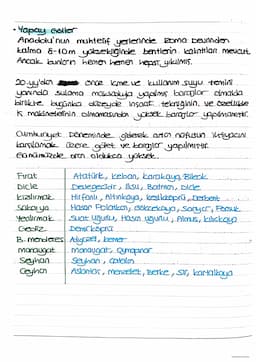 • Yapay Göller
Anadolu'nun muhtelif yerlerinde Roma Devrinden
kalma 8-10m yüksekliğinde bentlerin kalıntıları mevcut.
Ancak bunların hemen hemen hepsi yıkılmış.
20.yy'dan önce içme ve kullanım suyu temini
yanında sulama maksadıyla yapılmış barajlar olmakla
birlikte bugünkü düzeyde inşaat tekniğinin ve özellikle
iş makinelerinin olmamasından yüksek barajlar yapılmamıştır.
Cumhuriyet Döneminde giderek artan nüfusun ihtiyacını
karşılamak üzere gölet ve barajlar yapılmıştır.
Günümüzde oran oldukça yüksek.
Fırat Atatürk, Keban, Karakaya, Birecik
Dicle Devegeçidi, Ilısu, Batman, Dicle
Kızılırmak Hirfanlı, Altınkaya, Kesikköprü, Derbent
Sakarya Hasan Polatkan, Gökçekaya, Sarıyar, Porsuk
Yeşilırmak Suat Uğurlu, Hasan Uğurlu, Almus, Kılıçkaya
Gediz Demirköprü
B. Menderes Adıgüzel, Kemer
Manavgat Manavgat, Oymapınar
Seyhan Seyhan, Çatalan
Ceyhan Aslantaş, Menzelet, Berke, Sır, Kartalkaya